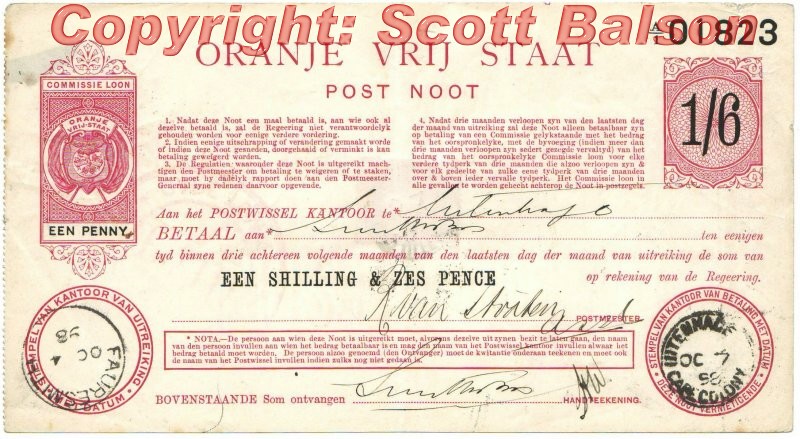 Copyright: Scott Balson
A/1 01823
ORANJE VRIJ STAAT
POST NOOT
COMMISSIE LOON
ORANJE
VRIJ-STAAT
EEN PENNY
1/6
1. Nadat deze Noot een maal betaald is, aan wie ook al
dezelve betaald is, zal de Regeering niet verantwoordelyk
gehouden worden voor eenige verdere vordering.
2. Indien eenige uitschrapping of verandering gemaakt worde
of indien deze Noot gesneden, doorgehaald of verminkt is kan
betaling geweigerd worden.
3. De Regulatien: waaronder deze Noot is uitgereikt mach-
tigen den Postmeester om betaling te weigeren of te staken,
maar moet hy dadelyk rapport doen aan den Postmeester-
Generaal zyne redenen daarvoor opgevende.
4. Nadat drie maanden verloopen zyn van den laatsten dag
der maand van uitreiking zal deze Noot alleen betaalbaar zyn
op betaling van een Commissie gelykstaande met het bedrag
van het oorspronkelyke, met de byvoeging (indien meer dan
drie maanden verloopen zyn sedert gezegde vervaltyd) van het
bedrag van het oorspronkelyke Commissie loon voor elke
verdere tydperk van drie maanden die alzoo verloopen zyn &
voor elk gedeelte van zulke eene tydperk van drie maanden
over & boven elk volle tydperk. Het Commissie loon in
alle gevallen te worden gehecht achterop de Noot in postzegels.
Aan het POSTWISSEL KANTOOR te* Uitenhage
BETAAL aan* ten eenigen
tyd binnen drie achtereen volgende maanden van den laatsten dag der maand van uitreiking de som van
EEN SHILLING & ZES PENCE op rekening van de Regeering.
POSTMEESTER.
* NOTA.—De persoon aan wien deze Noot is uitgereikt moet, alvorens dezelve uit zynen bezit te laten gaan, den naam
van den persoon invullen aan wien het bedrag betaalbaar is en mag den naam van het Postwissel Kantoor invullen alwaar het
bedrag betaald moet worden. De persoon alzoo genoemd (den Ontvanger) moet de kwitantie onderaan teekenen en moet ook
de naam van het Postwissel invullen indien zulks nog niet gedaan is.
BOVENSTAANDE Som ontvangen HANDTEEKENING.
STEMPEL VAN KANTOOR VAN UITREIKING
MET DATUM
FAURESM
OC 4
98
STEMPEL VAN KANTOOR VAN BETALING MET DATUM
DEZE NOOT VERNIETIGENDE
UITENHAGE
OC
98
CAPE COLONY